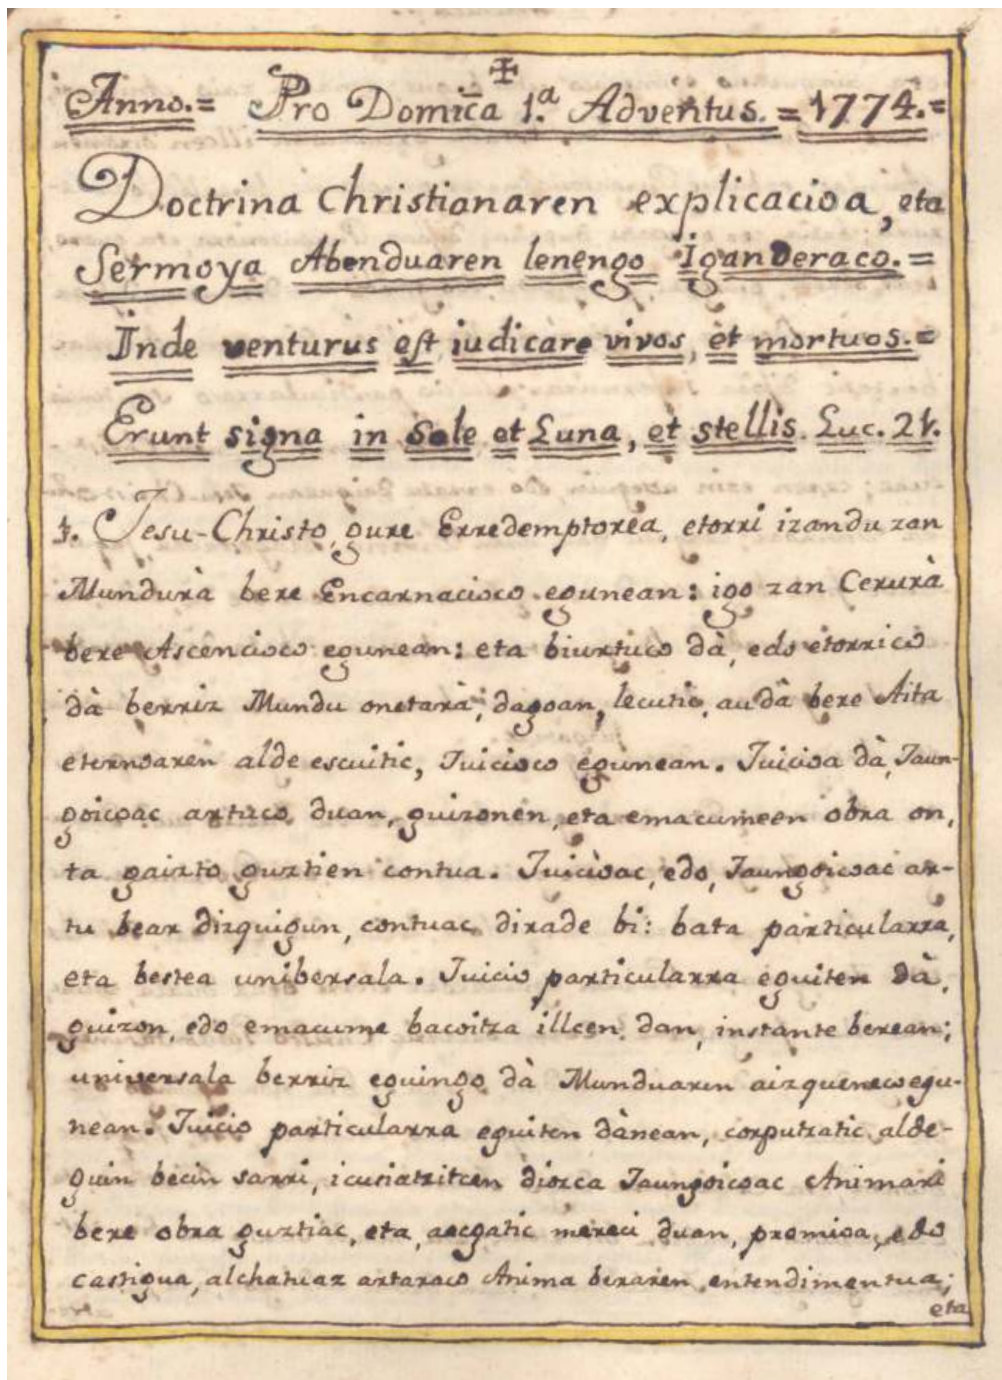 Anno.= Pro Domica 1.a Adventus.=1774.=
Doctrina Christianaren explicacioa, eta
Sermoya Abenduaren lenengo Iganderaco.=
Inde venturus est iudicare vivos, et mortuos.=
Erunt signa in Sole et Luna, et stellis. Luc. 21.
1. Jesu-Christo, gure Erredemptorea, etorri izandu zan
Mundurà bere Encarnacioco egunean: igo zan Cerurà
bere Ascencioco egunean: eta biurtuco dà, edo etorrico
dà berriz Mundu onetarà, dagoan, lecutic, au dà bere Aita
eternoaren alde escuitic, Juicioco egunean. Juicioa dà, Jaun-
goicoac artuco duan, guizonen, eta emacumeen obra on,
ta gaizto guztien contua. Juicioac, edo, Jaungoicoac ar-
tu bear dizquigun, contuac dirade bi: bata particularra,
eta bestea unibersala. Juicio particularra eguiten dà,
guizon, edo emacume bacoitza illcen dan, instante berean;
universala berriz eguingo dà Munduaren aizqueneco egu-
nean. Juicio particularra eguiten dànean, corputzatic alde-
guin becin sarri, icusiatzitcen diozca Jaungoicoac Animari
bere obra guztiac, eta, aecgatic mereci duan, premioa, edo
castigua, alchatuaz artaraco Anima beraren entendimentua;
eta